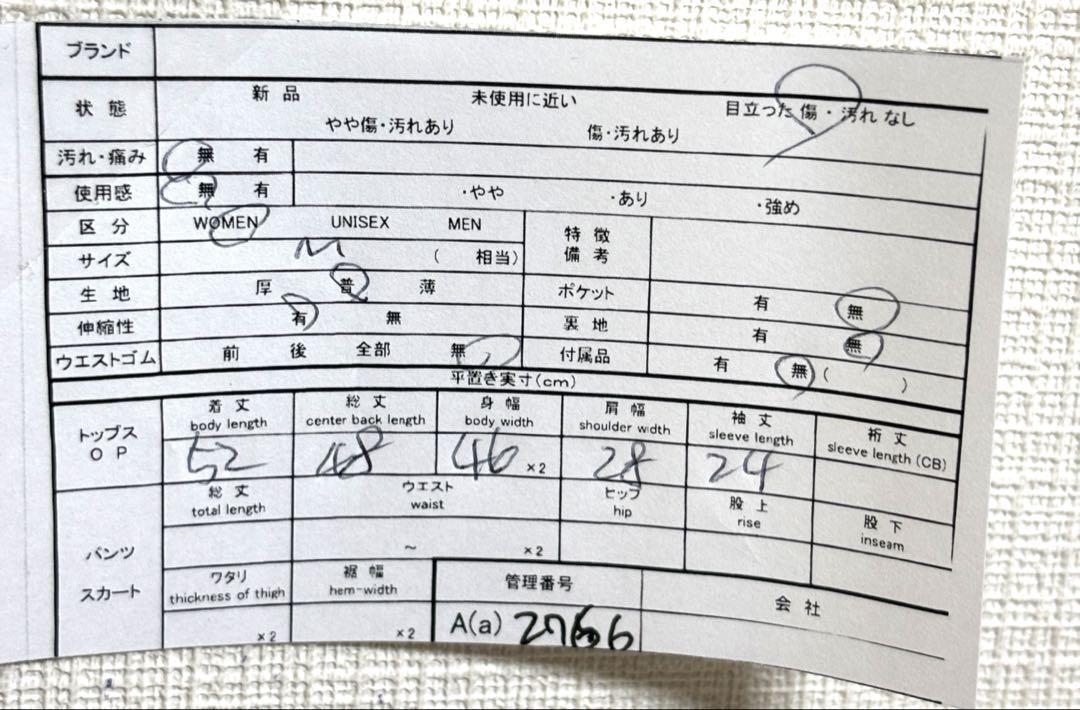 ブランド
状 態
新 品
未使用に近い
目立った 傷・汚れ なし
やや傷・汚れあり
傷・汚れあり
汚れ・痛み
無 有
使用感
無 有
・やや
・あり
・強め
区 分
WOMEN UNISEX MEN
特 徴
備 考
サイズ
M
( 相当)
生 地
厚 普 薄
ポケット
有 無
伸縮性
有 無
裏 地
有 無
ウエストゴム
前 後 全部 無
付属品
有 無 ( )
平置き実寸(cm)
トップス
O P
着 丈
body length
総 丈
center back length
身 幅
body width
肩 幅
shoulder width
袖 丈
sleeve length
裄 丈
sleeve length (CB)
52
48
46 ×2
28
24
パンツ
スカート
総 丈
total length
ウエスト
waist
ヒップ
hip
股 上
rise
股 下
inseam
~ ×2
ワタリ
thickness of thigh
裾 幅
hem-width
管理番号
会 社
×2
×2
A(a)